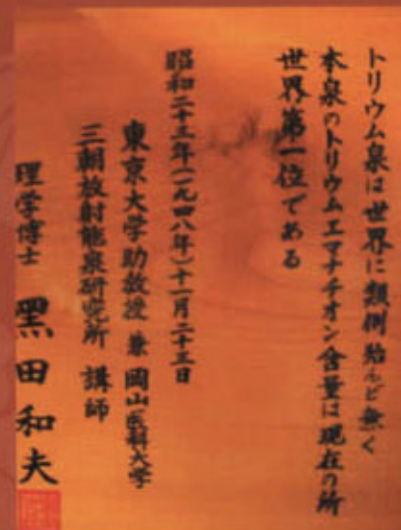 トリウム泉は世界に類例殆んど無く
本泉のトリウムエマナチオン含量は現在の所
世界第一位である
昭和二十三年(一九四八年)十一月二十三日
東京大学助教授 兼 岡山医科大学
三朝放射能泉研究所 講師
理学博士 黒田和夫